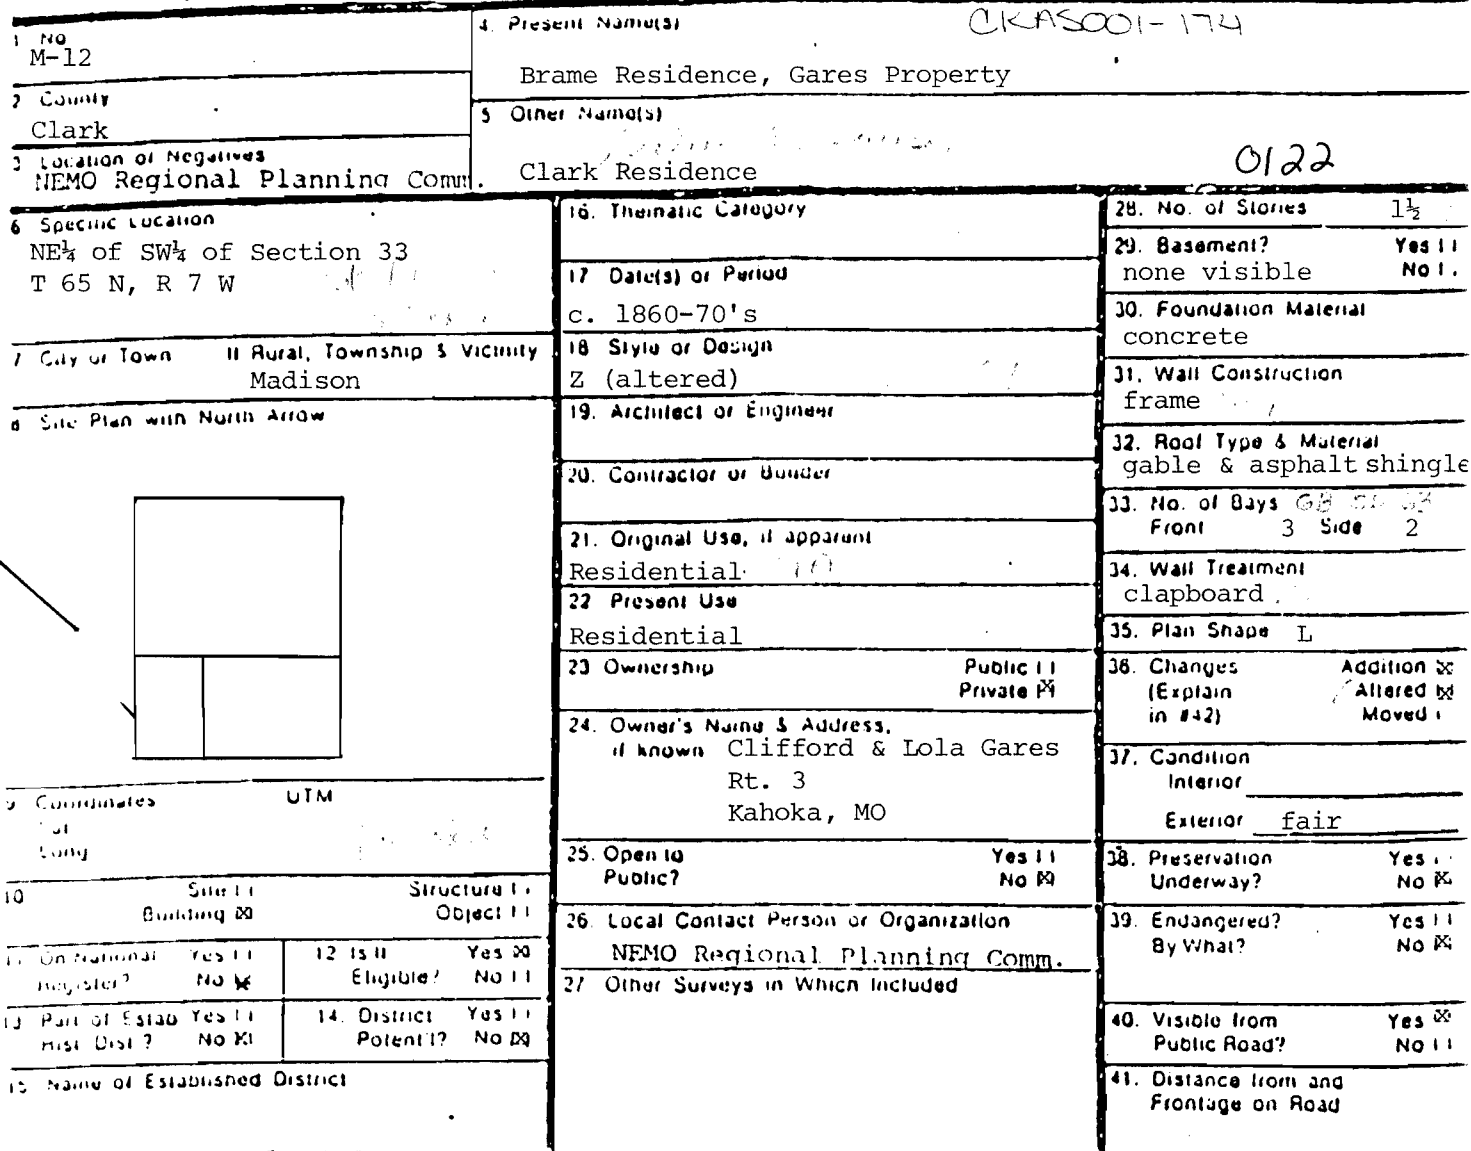 1 No
M-12
2 County
Clark
3 Location of Negatives
NEMO Regional Planning Comm.
4. Present Name(s)
CKAS001-174
Brame Residence, Gares Property
5 Other Name(s)
Clark Residence
0122
6 Specific Location
NE¼ of SW¼ of Section 33
T 65 N, R 7 W
7 City or Town If Rural, Township & Vicinity
Madison
8 Site Plan with North Arrow
9 Coordinates UTM
Lat
Long
10 Site [ ] Structure [ ]
Building [X] Object [ ]
11 On National Yes [ ]
Register? No [X]
12 Is It Yes [X]
Eligible? No [ ]
13 Part of Estab Yes [ ]
Hist Dist ? No [X]
14. District Yes [ ]
Potent'l? No [X]
15 Name of Established District
16. Thematic Category
17 Date(s) or Period
c. 1860-70's
18 Style or Design
Z (altered)
19. Architect or Engineer
20. Contractor or Builder
21. Original Use, if apparent
Residential
22 Present Use
Residential
23 Ownership Public [ ]
Private [X]
24. Owner's Name & Address,
if known Clifford & Lola Gares
Rt. 3
Kahoka, MO
25. Open to Yes [ ]
Public? No [X]
26. Local Contact Person or Organization
NEMO Regional Planning Comm.
27 Other Surveys in Which Included
28. No. of Stories 1½
29. Basement? Yes [ ]
none visible No [ ]
30. Foundation Material
concrete
31. Wall Construction
frame
32. Roof Type & Material
gable & asphalt shingle
33. No. of Bays
Front 3 Side 2
34. Wall Treatment
clapboard
35. Plan Shape L
36. Changes Addition [X]
(Explain Altered [X]
in #42) Moved [ ]
37. Condition
Interior
Exterior fair
38. Preservation Yes [ ]
Underway? No [X]
39. Endangered? Yes [ ]
By What? No [X]
40. Visible from Yes [X]
Public Road? No [ ]
41. Distance from and
Frontage on Road